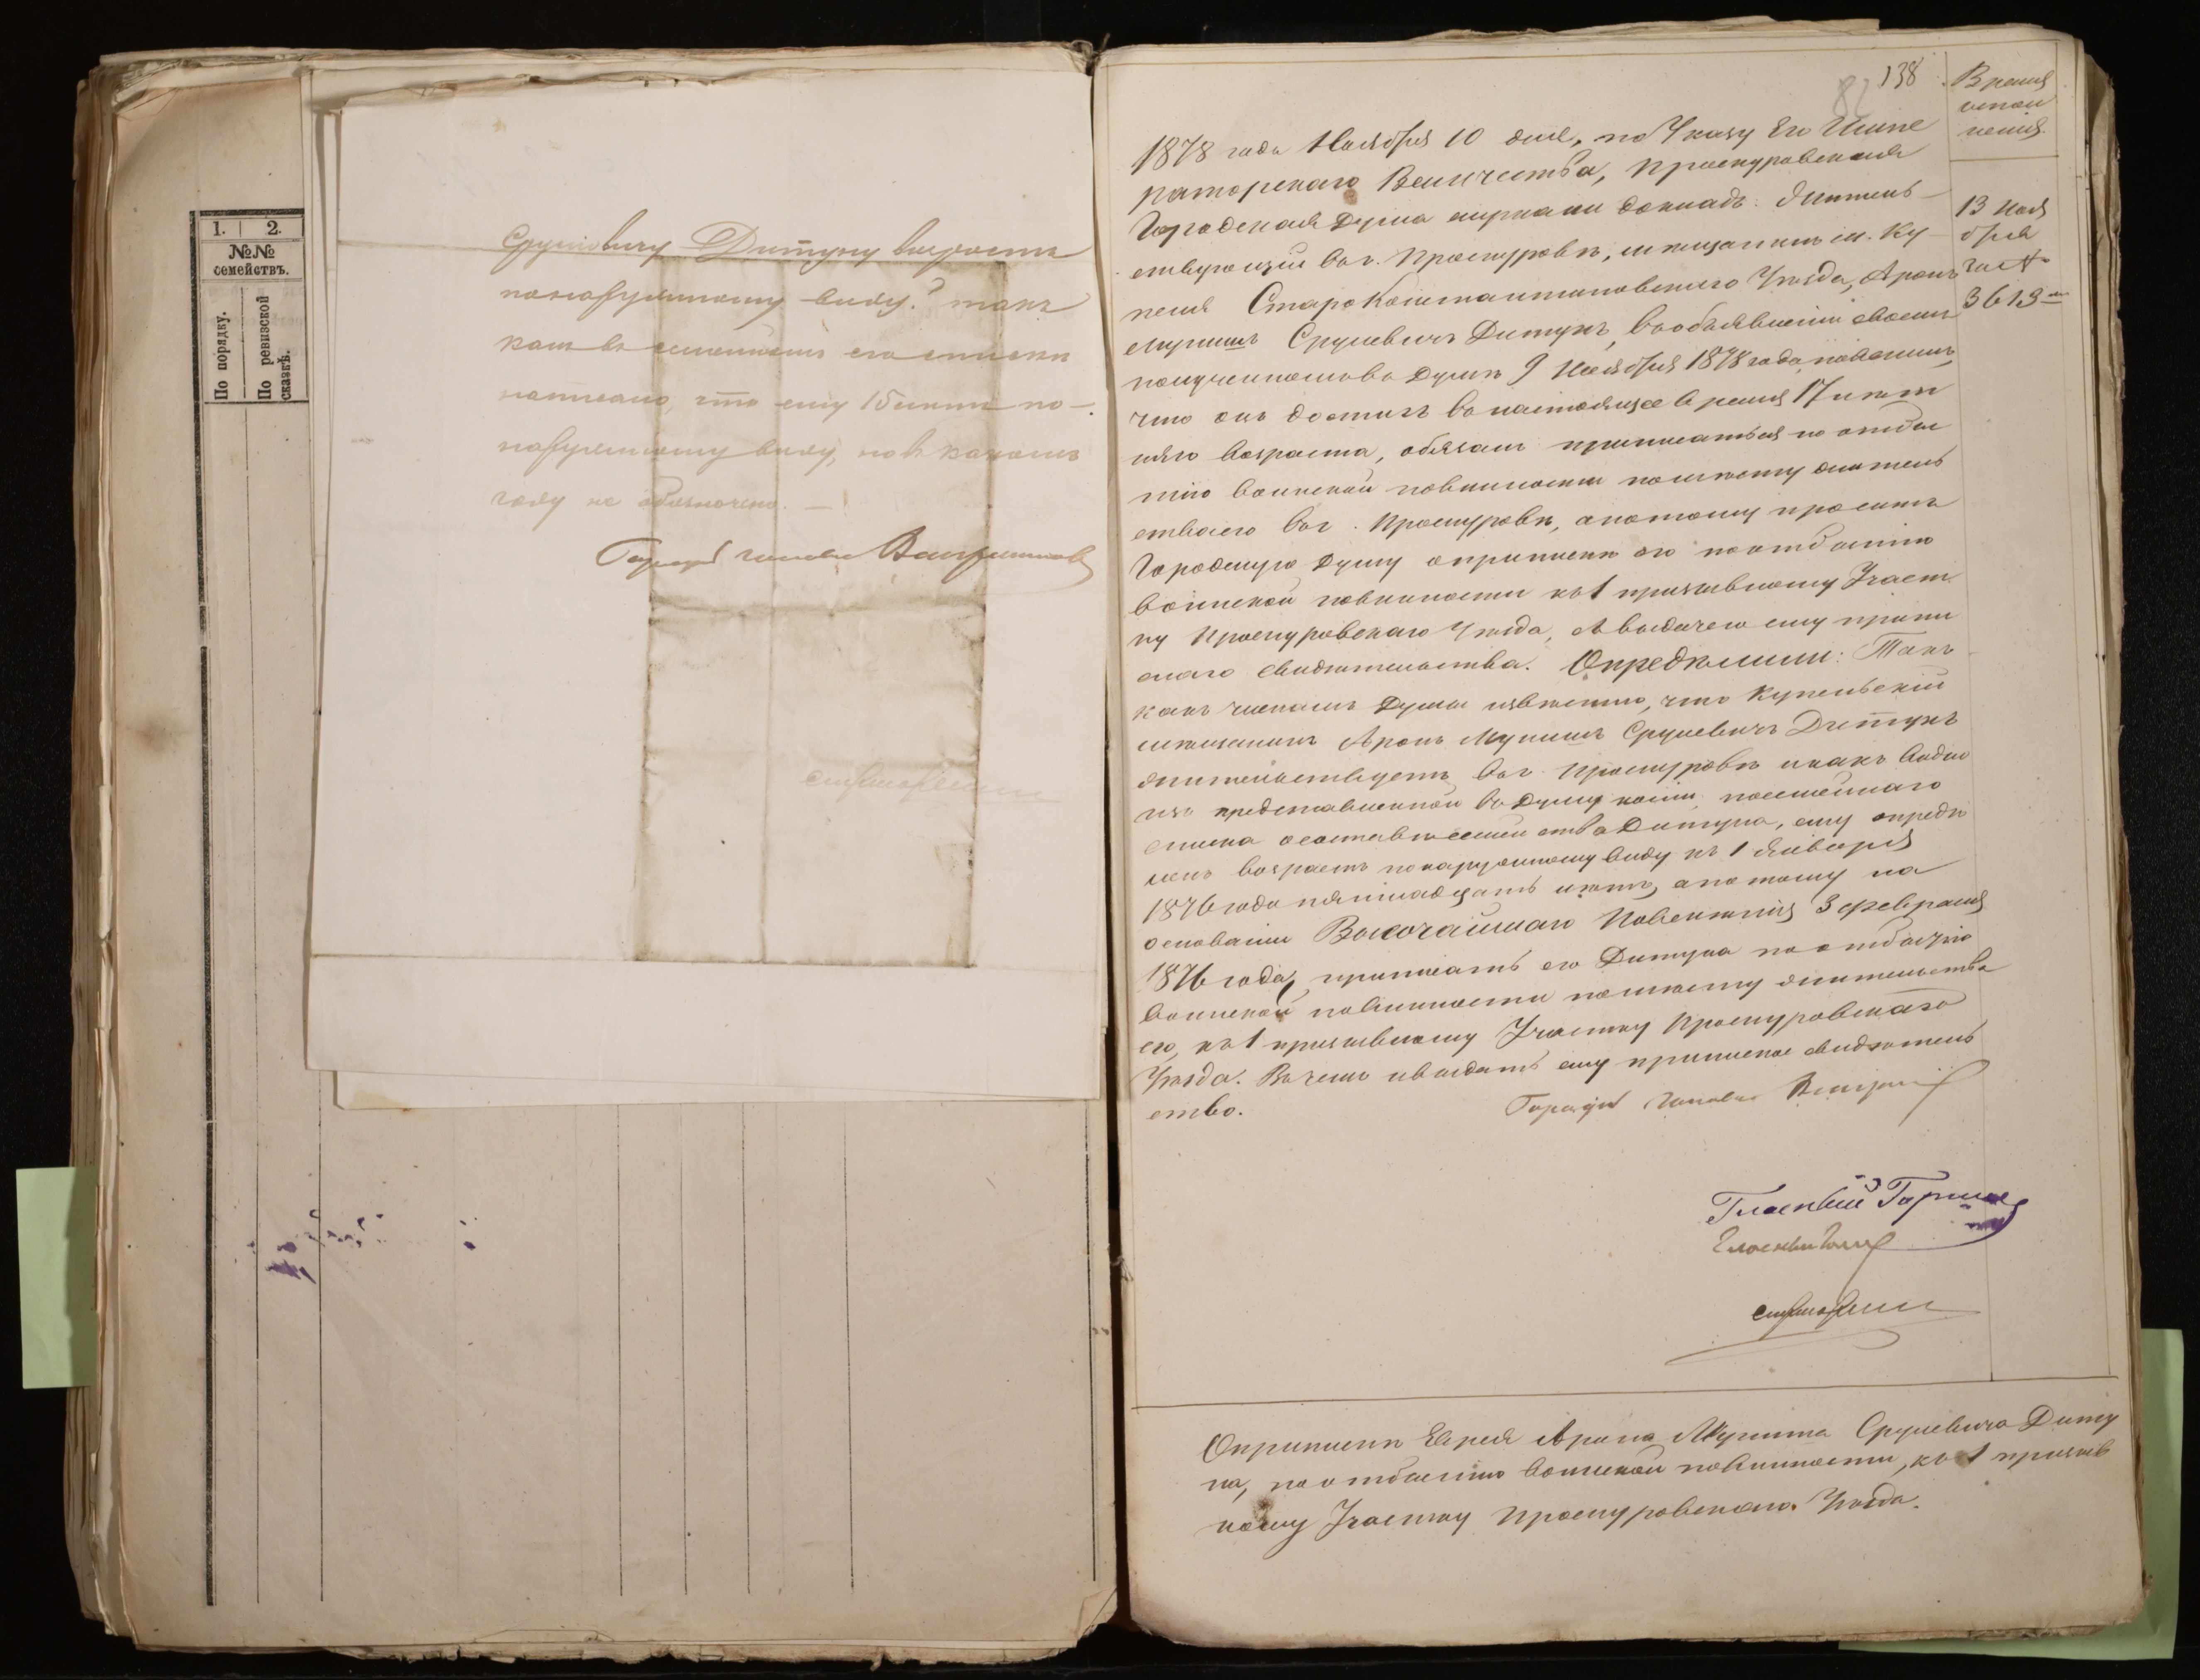 1.
2.
№№
семействъ.
По порядку.
По ревизской
сказкѣ.
Сруловичу Дитуну возрастъ
по наружному виду? такъ
какъ въ семейномъ его спискѣ
написано, что ему 15 лѣтъ по
наружному виду, но въ какомъ
году не обозначено. —
Город голова
138
82
Время
испол
ненія
1878 года Ноября 10 дня, по Указу Его Импе
раторскаго Величества, Проскуровская
Городская Дума слушали докладъ: Житель
ствующій въ г. Проскуровѣ, мѣщанинъ м. Ку
пеля Старо Константиновскаго Уѣзда, Аронъ
Мунишъ Срулевичъ Дитунъ, въ объявленіи своемъ
полученномъ въ Думѣ 9 Ноября 1878 года, пояснилъ,
что онъ достигъ въ настоящее время 17 лѣт
няго возраста, обязанъ приписаться по отбы
тію воинской повинности по мѣсту житель
ства его въ г. Проскуровѣ, а потому проситъ
Городскую Думу о припискѣ его по отбытію
воинской повинности къ 1 призывному Участ
ку Проскуровскаго Уѣзда, и выдаче ему припи
снаго свидѣтельства. Опредѣлили: Такъ
какъ членамъ Думы извѣстно, что Купельскій
мѣщанинъ Аронъ Мунишъ Срулевичъ Дитунъ
жительствуетъ въ г. Проскуровѣ и какъ видно
изъ представленной въ Думу копіи посемейнаго
списка о составѣ семейства Дитуна, ему опредѣ
ленъ возрастъ по наружному виду къ 1 Января
1876 года пятнадцать лѣтъ, а потому на
основаніи Высочайшаго Повелѣнія 3 февраля
1876 года, приписать его Дитуна по отбытію
воинской повинности по мѣсту жительства
его, къ 1 призывному Участку Проскуровскаго
Уѣзда. Въ чемъ и выдать ему приписное свидѣтель
ство.
13 Ноя
бря
за №
3613
Город голова
Гласный
Гласный
О припискѣ Еврея Арона Муниша Срулевича Диту
на, по отбытію воинской повинности, къ 1 призыв
ному Участку Проскуровскаго Уѣзда.